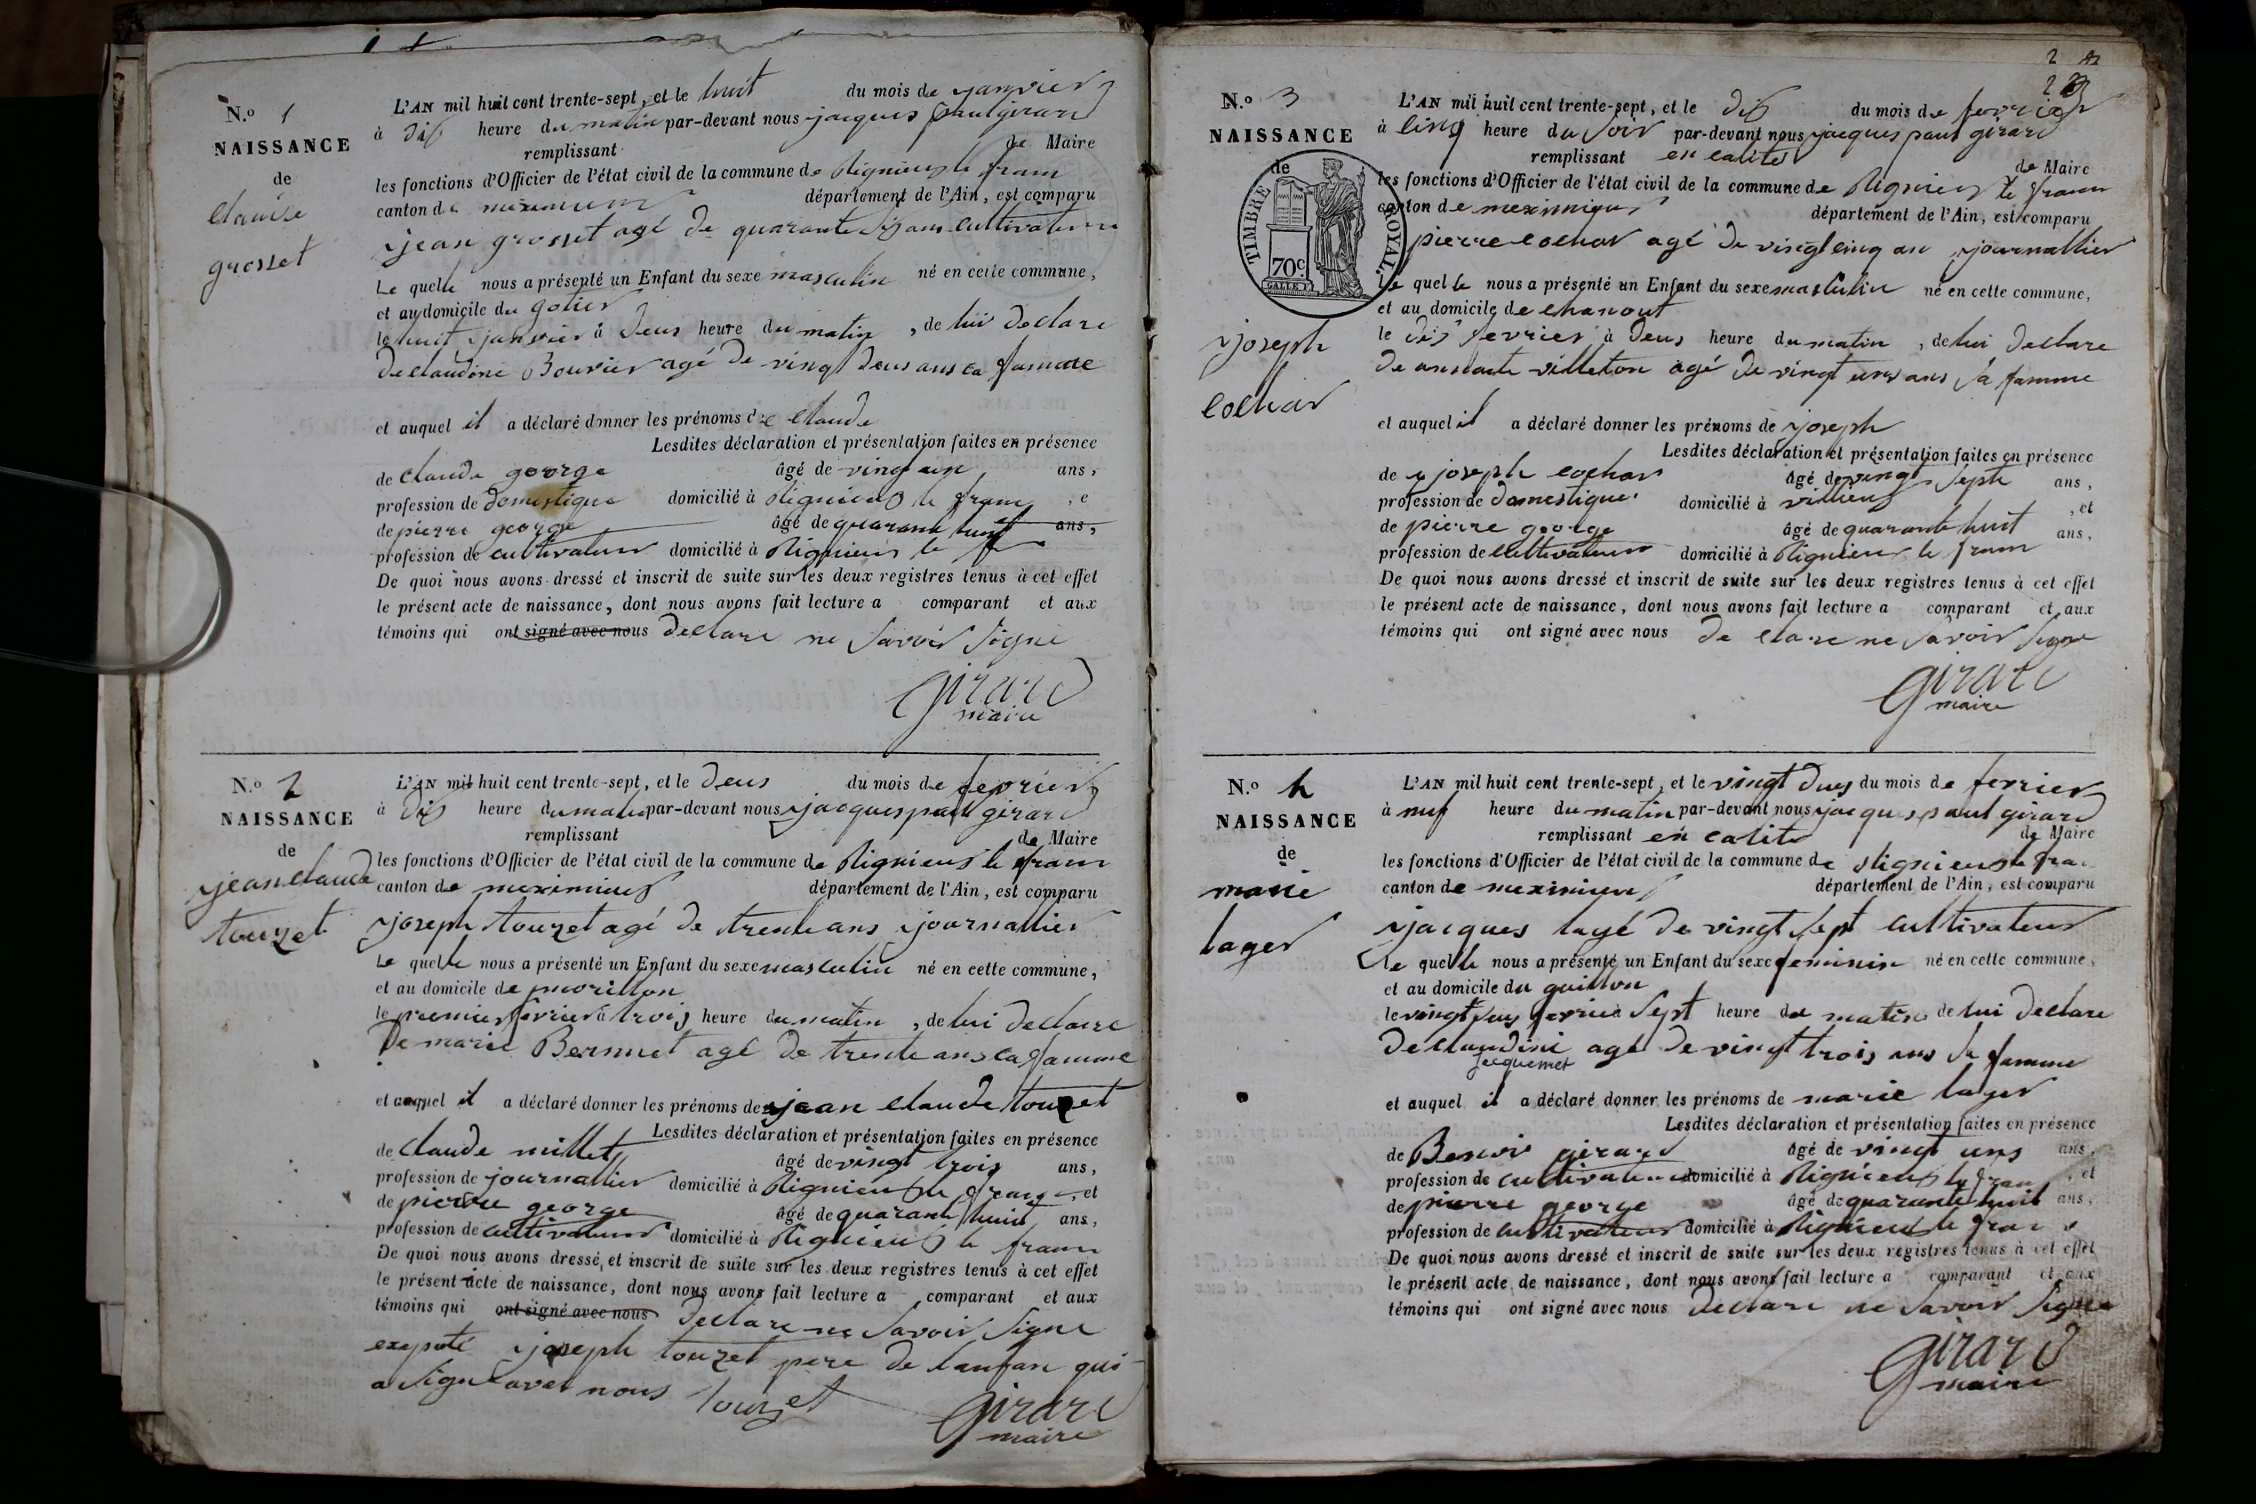 N.º 1
NAISSANCE
de
claude
grosset
L'AN mil huit cent trente-sept, et le huit du mois de janvier
à dix heure du matin par-devant nous jacques paul girard
remplissant de Maire
les fonctions d'Officier de l'état civil de la commune de Rignieux le franc
canton de meximieux département de l'Ain, est comparu
jean grosset agé de quarante six ans cultivateur
Le quelle nous a présenté un Enfant du sexe masculin né en cette commune,
et au domicile du gotier
le huit janvier à deux heure du matin, de lui declare
de claudine Bouvier agé de vingt deus ans sa famme
et auquel il a déclaré donner les prénoms de claude
Lesdites déclaration et présentation faites en présence
de claude george âgé de vingt un ans,
profession de domestique domicilié à Rignieux le franc, e
de pierre george âgé de quarante huit ans,
profession de cultivateur domicilié à Rignieux le
De quoi nous avons dressé et inscrit de suite sur les deux registres tenus à cet effet
le présent acte de naissance, dont nous avons fait lecture a comparant et aux
témoins qui ont signé avec nous declare ne savoir signe
girard
maire
N.º 2
NAISSANCE
de
jean claude
touzet
L'AN mil huit cent trente-sept, et le deus du mois de fevrier
à dix heure du matin par-devant nous jacques paul girard
remplissant de Maire
les fonctions d'Officier de l'état civil de la commune de Rignieux le franc
canton de meximieux département de l'Ain, est comparu
joseph touzet agé de trente ans journallier
Le quelle nous a présenté un Enfant du sexe masculin né en cette commune,
et au domicile de morillon
le premier fevrier à trois heure du matin, de lui declare
De marie Bernnet agé de trente ans sa famme
et auquel il a déclaré donner les prénoms de jean claude touzet
Lesdites déclaration et présentation faites en présence
de claude millet âgé de vingt trois ans,
profession de journallier domicilié à Rignieux le franc, et
de pierre george âgé de quarante huit ans,
profession de cultivateur domicilié à Rignieux le franc
De quoi nous avons dressé et inscrit de suite sur les deux registres tenus à cet effet
le présent acte de naissance, dont nous avons fait lecture a comparant et aux
témoins qui ont signé avec nous declare ne savoir signe
exepté joseph touzet pere de lanfan qui
a signé avec nous touzet
girard
maire
2
N.º 3
NAISSANCE
de
TIMBRE ROYAL
70c
joseph
cochar
L'AN mil huit cent trente-sept, et le dix du mois de fevrier
à cinq heure du soir par-devant nous jacques paul girard
remplissant en calité de Maire
les fonctions d'Officier de l'état civil de la commune de Rignieux le franc
canton de meximieux département de l'Ain, est comparu
pierre cochar agé de vingt cinq an journallier
Le quelle nous a présenté un Enfant du sexe masculin né en cette commune,
et au domicile de chanout
le dix fevrier à deus heure du matin, de lui declare
de villeton agé de vingt uns ans sa famme
et auquel il a déclaré donner les prénoms de joseph
Lesdites déclaration et présentation faites en présence
de joseph cochar âgé de vingt septe ans,
profession de domestique domicilié à villieux, et
de pierre george âgé de quarante huit ans,
profession de cultivateur domicilié à Rignieux le franc
De quoi nous avons dressé et inscrit de suite sur les deux registres tenus à cet effet
le présent acte de naissance, dont nous avons fait lecture a comparant et aux
témoins qui ont signé avec nous de clare ne savoir signe
girard
maire
N.º 4
NAISSANCE
de
marie
layer
L'AN mil huit cent trente-sept, et le vingt dues du mois de fevrier
à nuf heure du matin par-devant nous jacques paul girard
remplissant en calité de Maire
les fonctions d'Officier de l'état civil de la commune de Rignieux le fran
canton de meximieux département de l'Ain, est comparu
jacques layé de vingt sept cultivateur
Le quelle nous a présenté un Enfant du sexe feminin né en cette commune,
et au domicile du guillon
le vingt dues fevrie à sept heure du matin de lui declare
de claudine agé de vingt trois ans sa famme
jacquemet
et auquel il a déclaré donner les prénoms de marie layer
Lesdites déclaration et présentation faites en présence
de Benoi girard âgé de vingt uns ans,
profession de cultivateur domicilié à Rignieux le fran, et
de pierre george âgé de quarante huit ans,
profession de cultivateur domicilié à Rignieux le fran
De quoi nous avons dressé et inscrit de suite sur les deux registres tenus à cet effet
le présent acte de naissance, dont nous avons fait lecture a comparant et aux
témoins qui ont signé avec nous declare ne savoir signe
girard
maire